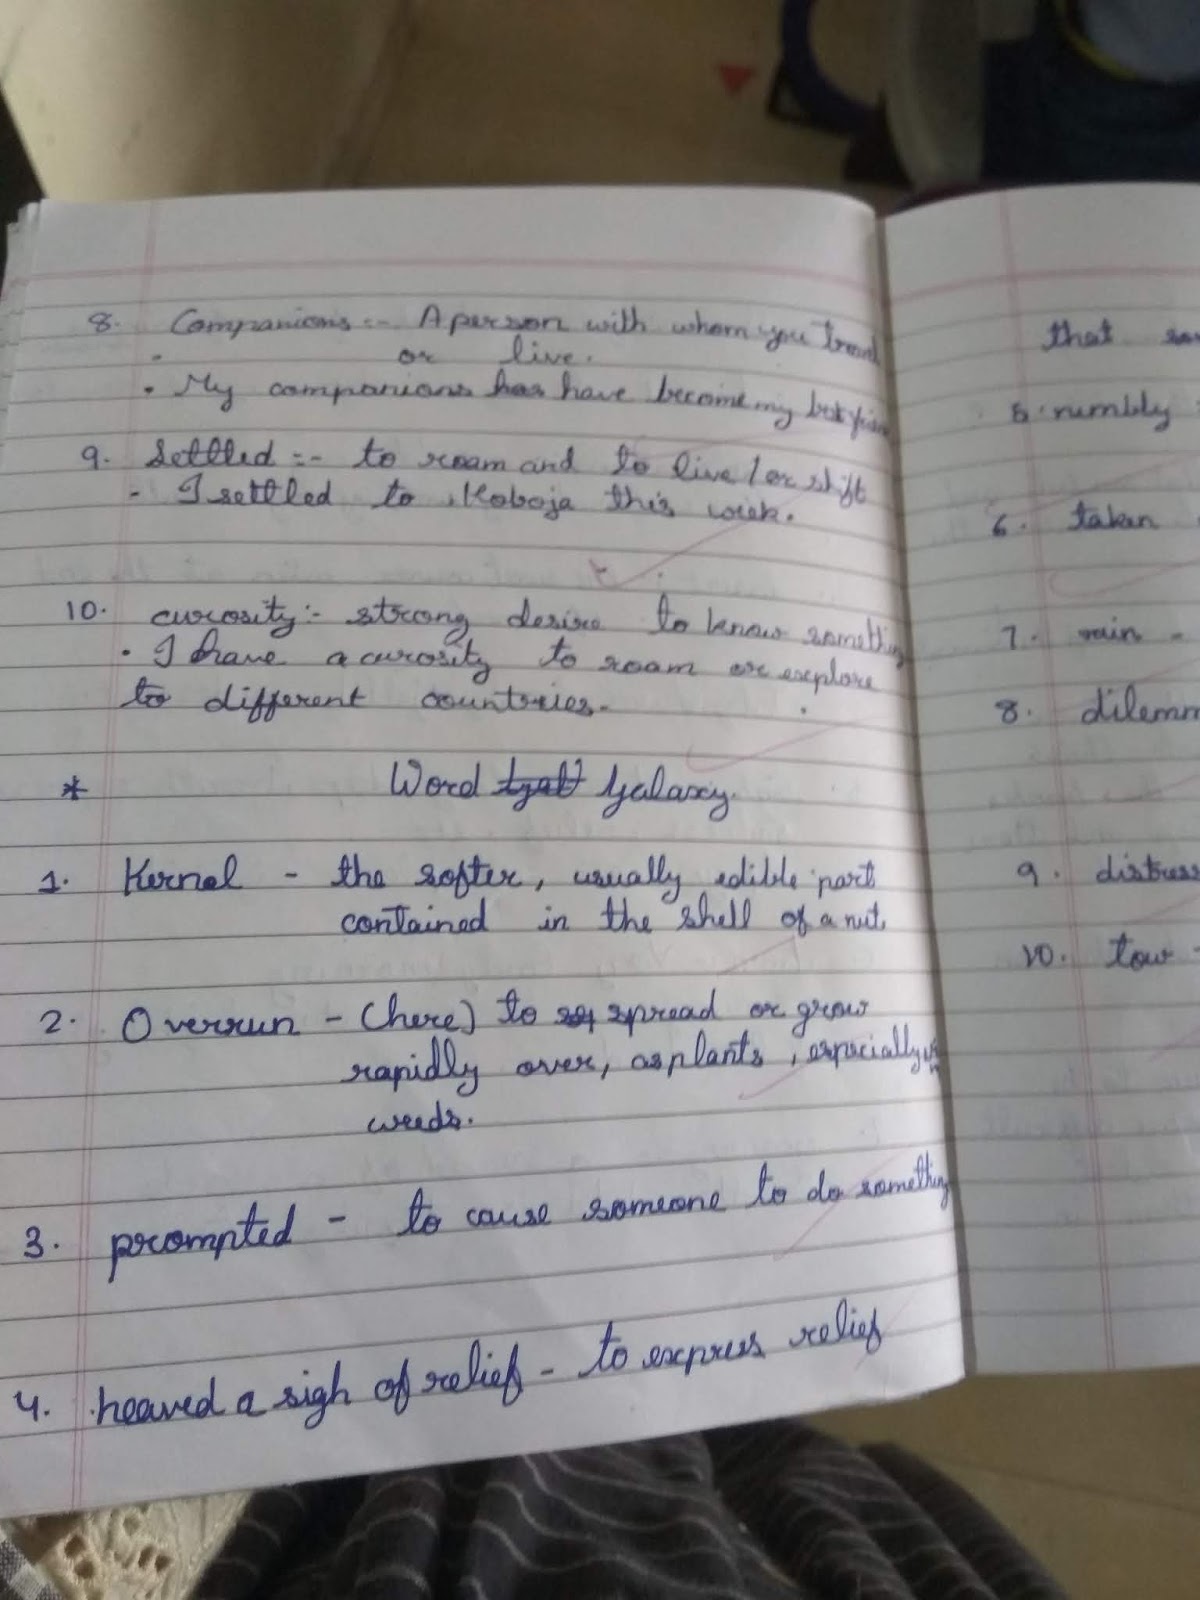 8. Companions :- A person with whom you travel
or live.
• My companions has have become my best
9. Settled :- to roam and to live / or shift
- I settled to this week.
10. curosity :- strong desire to know something
• I have a curosity to roam or explore
to different countries.
* Word Galaxy
1. Kernel - the softer, usually edible part
contained in the shell of a nut.
2. Overrun - (here) to spread or grow
rapidly over, as plants, especially
weeds.
3. prompted - to cause someone to do something
4. heaved a sigh of relief - to express relief
that
5. rumbly
6. taken
7. rain -
8. dilemm
9. distress
10. tow -